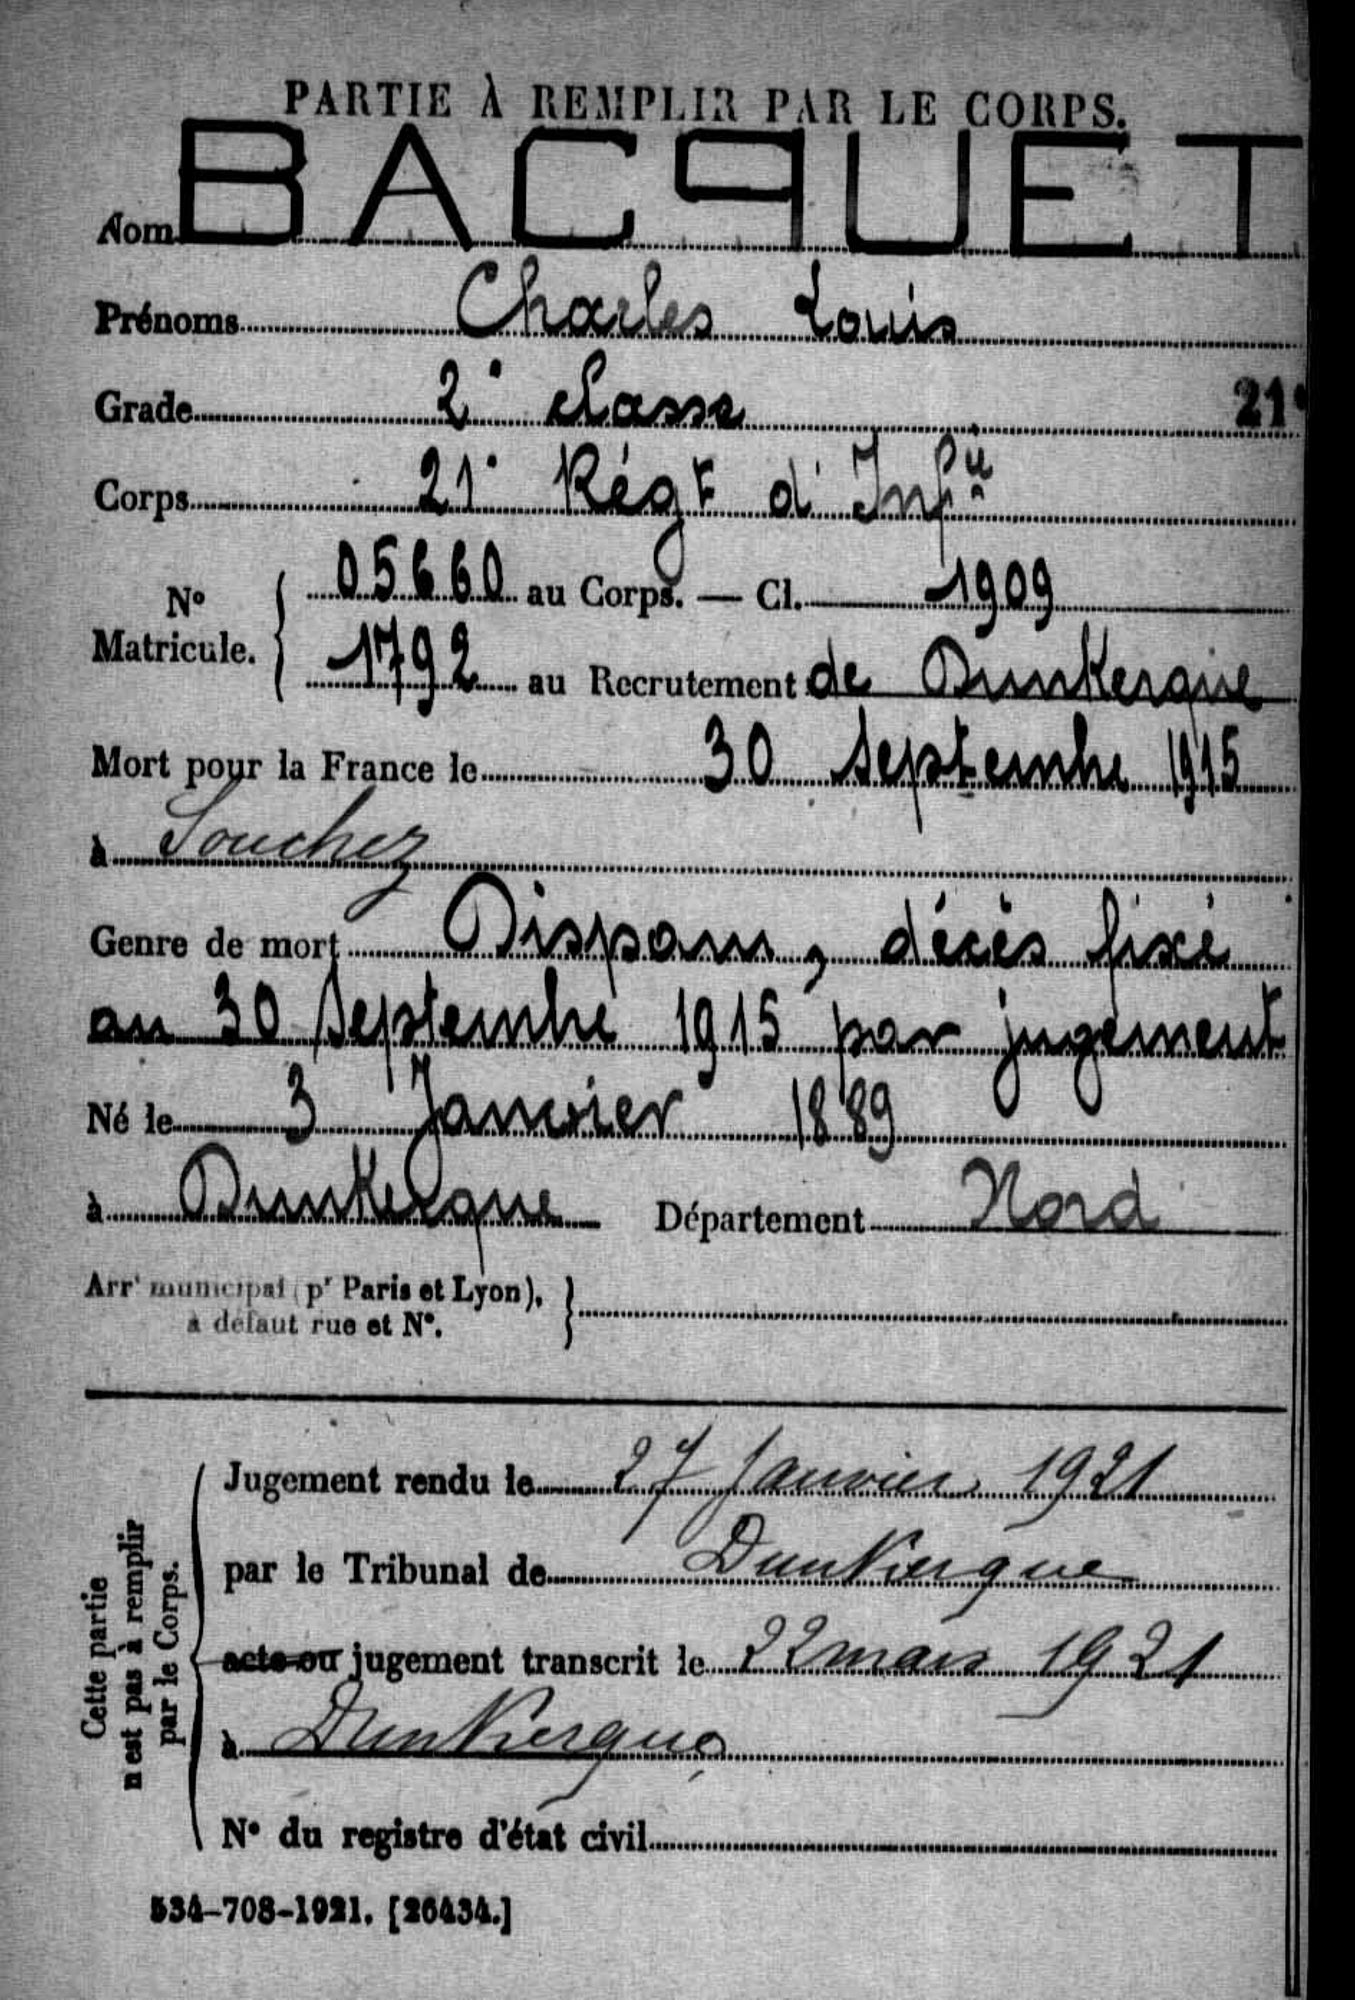 PARTIE À REMPLIR PAR LE CORPS.
Nom BACQUET
Prénoms Charles Louis
Grade 2e classe
21e
Corps 21e Régt d'Infie
No Matricule. { 05660 au Corps. — Cl. 1909
1792 au Recrutement de Dunkerque
Mort pour la France le 30 Septembre 1915
à Souchez
Genre de mort Disparu, décès fixé
au 30 Septembre 1915 par jugement
Né le 3 Janvier 1889
à Dunkerque Département Nord
Arrt municipal (pr Paris et Lyon), }
à défaut rue et No.
Cette partie
n'est pas à remplir
par le Corps.
Jugement rendu le 27 Janvier 1921
par le Tribunal de Dunkerque
acte ou jugement transcrit le 22 mars 1921
à Dunkerque
No du registre d'état civil
534-708-1921. [26434.]